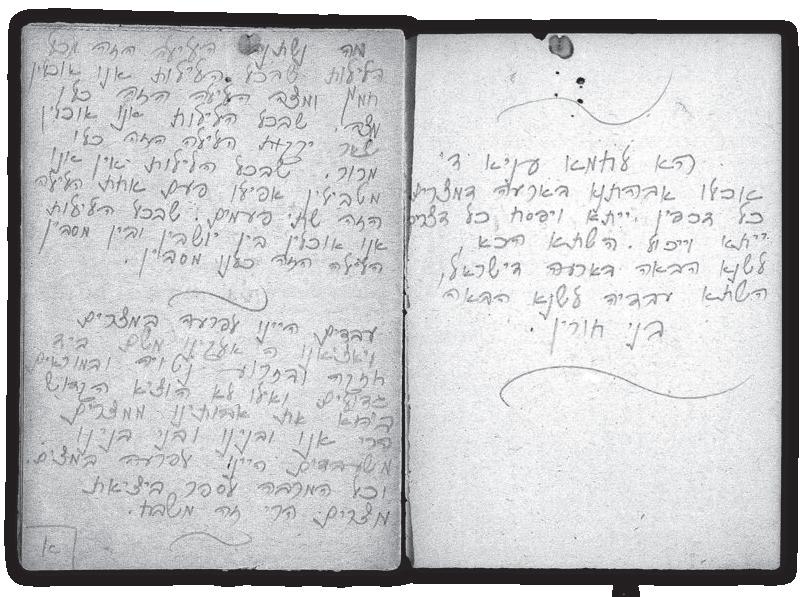 הא לחמא עניא די
אוכלו אבהתנא בארעה דמצרים
כל דכפין ייתא ויפסח כל דצריך
ייתא וייכול. השתא הכא,
לשנא הבאה בארעה דישראל,
השתא עבדיה לשנא הבאה
בני חורין.
מה נשתנה הלילה הזה מכל
הלילות שבכל הלילות אנו אוכלין
חמץ ומצה הלילה הזה כלו
מצה. שבכל הלילות אנו אוכלין
שאר ירקות הלילה הזה כלו
מרור. שבכל הלילות אין אנו
מטבילין אפילו פעם אחת הלילה
הזה שתי פעמים. שבכל הלילות
אנו אוכלין בין יושבין ובין מסבין
הלילה הזה כלנו מסבין.
עבדים היינו לפרעה במצרים
ויוציאנו ה אלהינו משם ביד
חזקה ובזרוע נטויה ובמוראים
גדולים ואילו לא הוציא הקדוש
את אבותינו ממצרים
הרי אנו ובנינו ובני בנינו
משעבדים היינו לפרעה במצרים.
וכל המרבה לספר ביציאת
מצרים. הרי זה משבח.